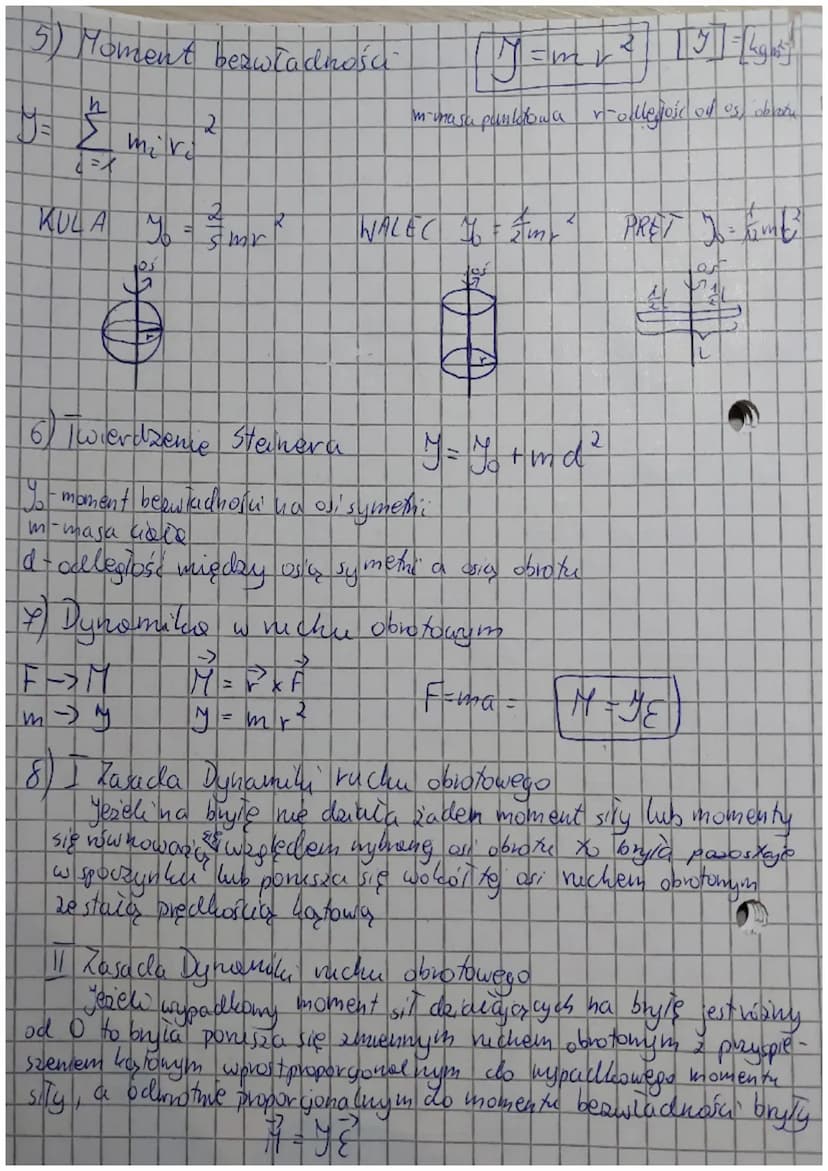 5) Moment bezwładności J = m r² [J] = [kg m²]
m-masa punktowa r-odległość od osi obrotu
J = n Σ i=1 mᵢ rᵢ²
KULA J₀ = 2/5 mr² WALEC J₀ = 1/2 mr² PRĘT J₀ = 1/12 mL²
oś oś oś
1/2 L 1/2 L
r r L
6) Twierdzenie Steinera J = J₀ + m d²
J₀-moment bezwładności na osi symetrii
m-masa ciała
d-odległość między osią symetrii a osią obrotu
7) Dynamika w ruchu obrotowym
F → M M⃗ = r⃗ × F⃗ F=ma = M = Jε
m → J J = m r²
8) I Zasada Dynamiki ruchu obrotowego
Jeżeli na bryłę nie działa żaden moment siły lub momenty
się równoważą względem wybranej osi obrotu to bryła pozostaje
w spoczynku lub porusza się wokół tej osi ruchem obrotowym
ze stałą prędkością kątową
II Zasada Dynamiki ruchu obrotowego
Jeżeli wypadkowy moment sił działających na bryłę jest różny
od 0 to bryła porusza się zmiennym ruchem obrotowym z przyspie-
szeniem kątowym wprost proporcjonalnym do wypadkowego momentu
siły, a odwrotnie proporcjonalnym do momentu bezwładności bryły
M⃗ = Jε⃗